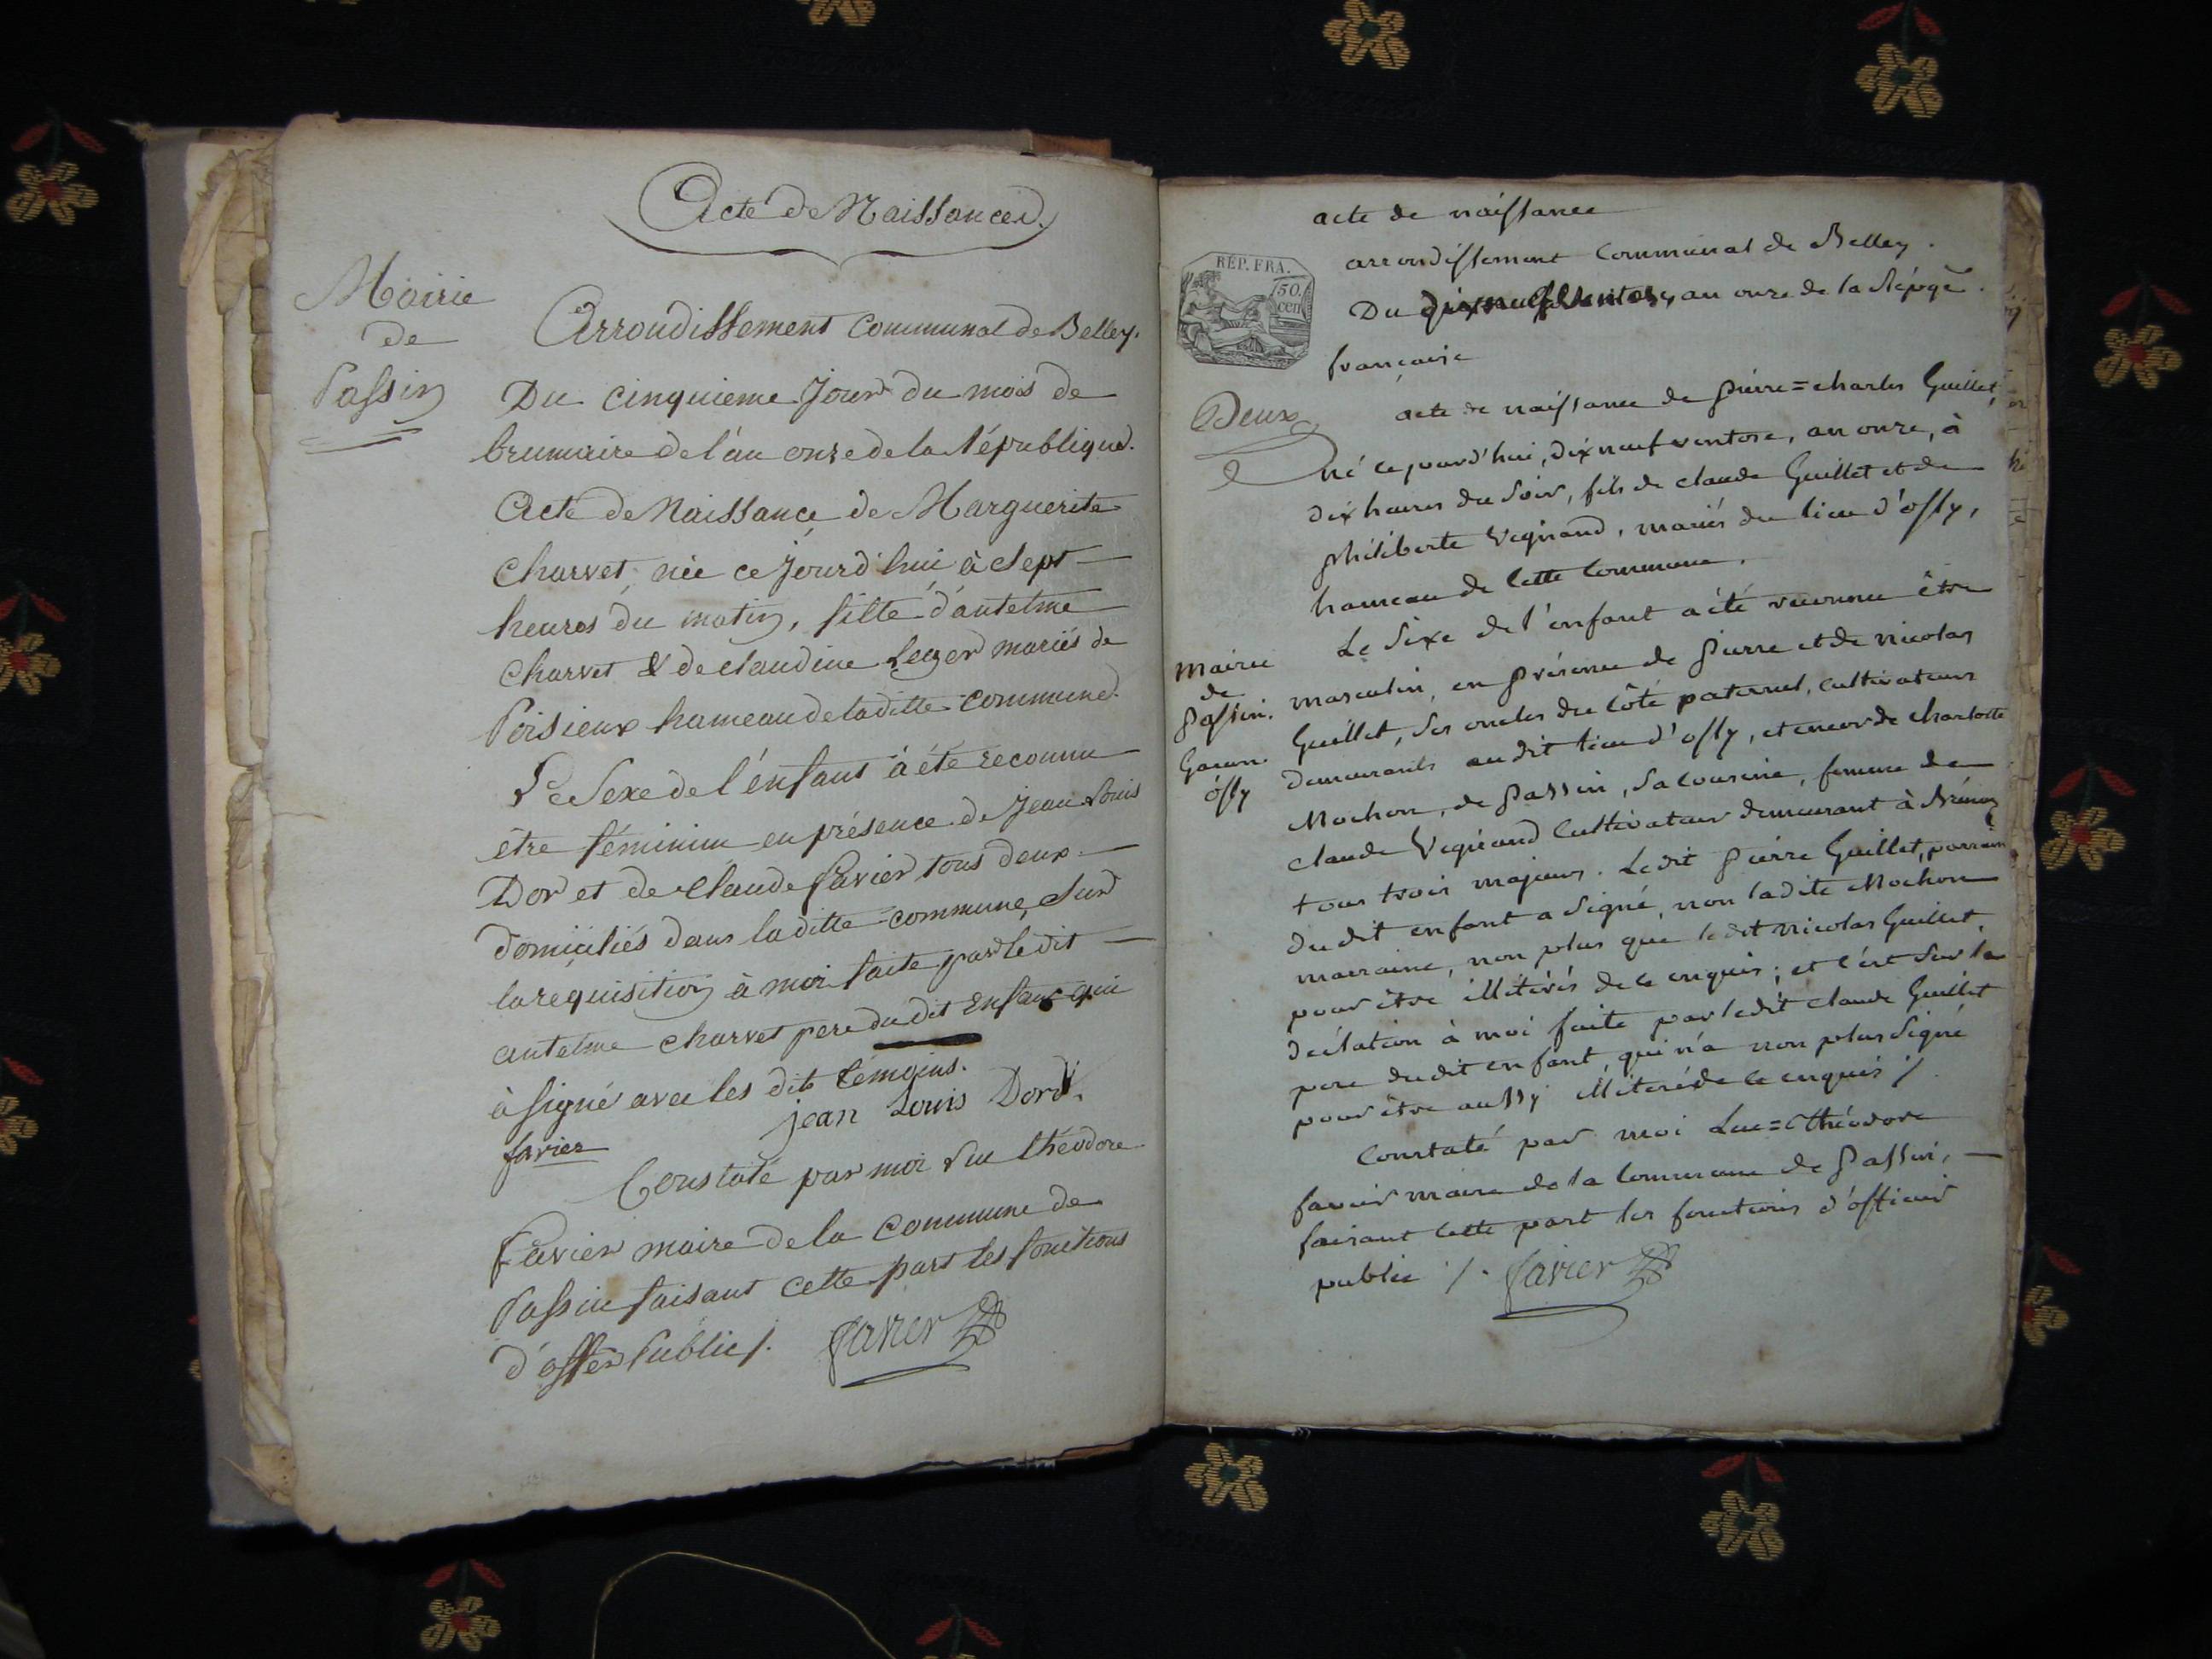 Acte de Naissance.
Mairie
de
Passin
Arrondissement Communal de Belley.
Du cinquieme Jour du mois de
brumaire de l'an onze de la république.
Acte de Naissance de Marguerite
Charvet née ce Jourd'hui à Sept
heures du matin, fille d'antelme
Charvet & de Claudine Leger mariés de
Poisieux hameau de laditte commune.
Le Sexe de l'énfant à été reconnu
être féminin en présence de Jean Louis
Dor et de Claude favier tous deux
domiciliés dans laditte commune, Sur
la requisition à moi faite par le dit
antelme Charvet pere du dit Enfant qui
à signé avec les dits témoins.
favier jean Louis Dord.
Constaté par moi Luc théodore
favier maire de la Commune de
Passin faisant cette part les fonctions
d'offer Public /. favier
acte de naissance
arrondissement Communal de Belley.
RÉP. FRA.
50.
cen
Du dix neuf Ventose, an onze de la Répuqe.
française
Deux
acte de naissance de pierre=charles Guillet,
né ce jourd'hui, dix neuf ventose, an onze, à
dix heures du Soir, fils de claude Guillet et de
philiberte Vegniand, mariés du lieu d'ossy,
hameau de Cette Commune.
Le Sexe de l'enfant a été reconnu être
masculin, en présence de pierre et de nicolas
Mairie
de
passin.
Garcon
óssy
Guillet, Ses oncles du Côté paternel, cultivateurs
demeurants au dit lieu d'ossy, et encor de charlotte
Mochon, de passin, Sa Cousine, femme de
claude Vegniand Cultivateur demeurant à
tous trois majeurs. Ledit pierre Guillet, parrain
du dit enfant a Signé, non la dite Mochon
marraine, non plus que ledit nicolas Guillet,
pour être illiterés de ce enquis; et c'est Sur la
déclation à moi faite par ledit claude Guillet
pere du dit enfant, qui n'a non plus Signé
pour être aussy illiteré de ce enquis /.
Constaté par moi Luc=théodore
favier maire de la Commune de passin,
faisant Cette part les fonctions d'officier
public /. favier